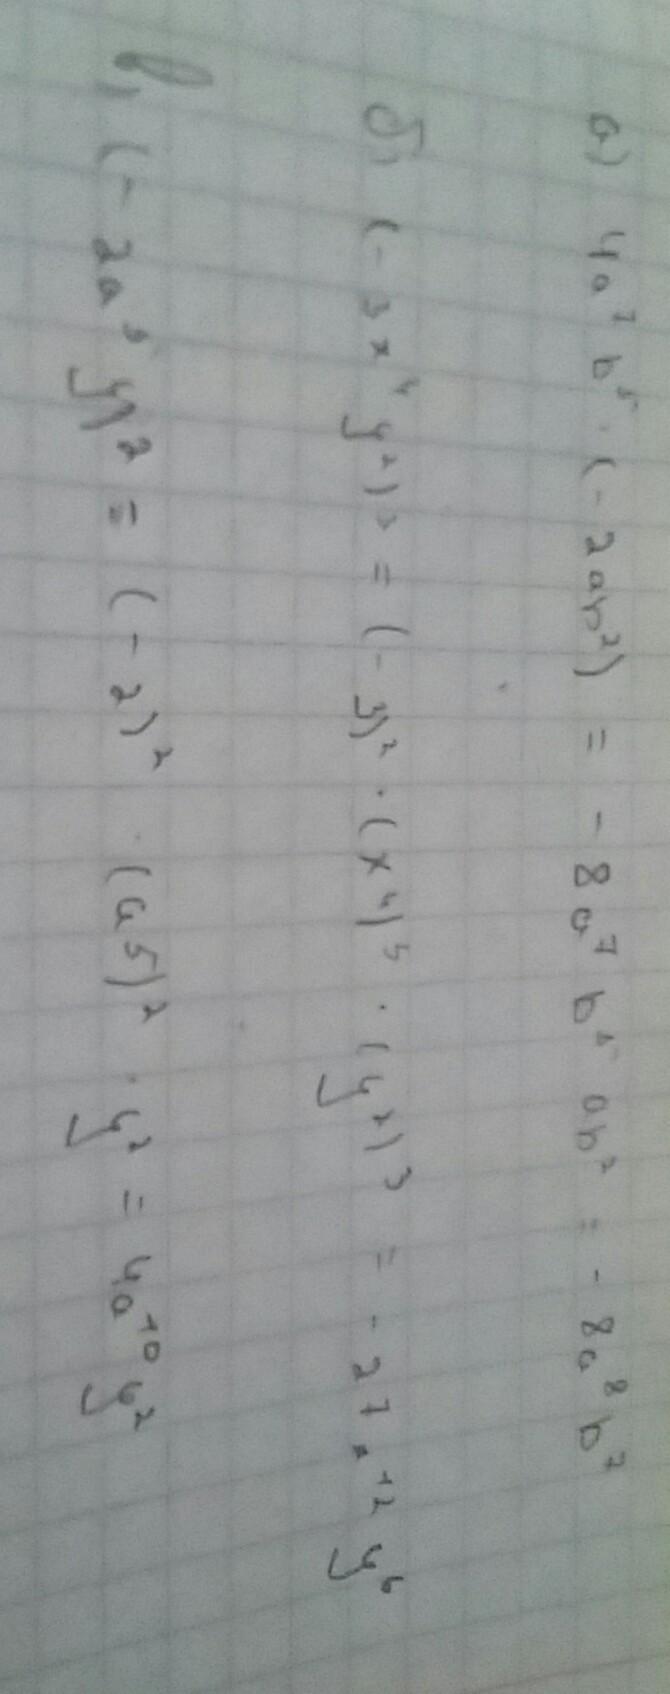 а) 4a⁷b⁵ · (-2ab²) = -8a⁷b⁵ab² = -8a⁸b⁷
б) (-3x⁴y²)³ = (-3)² · (x⁴)⁵ · (y²)³ = -27x¹²y⁶
в) (-2a⁵y)² = (-2)² · (a5)² · y² = 4a¹⁰y²